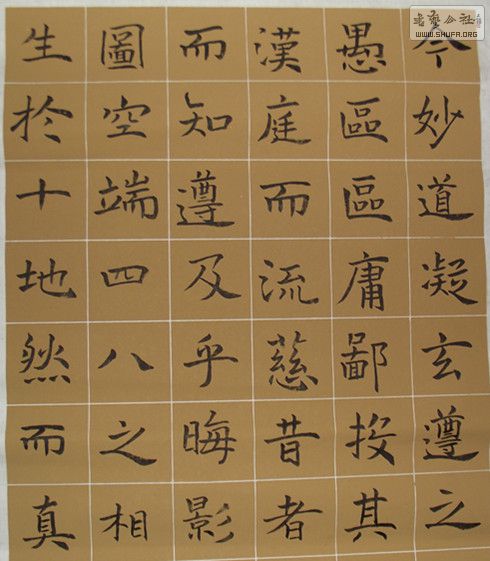 今妙道凝玄遵之
愚區區庸鄙投其
漢庭而流慈昔者
而知遵及乎晦影
圖空端四八之相
生於十地然而真
書藝公社
WWW.SHUFA.ORG